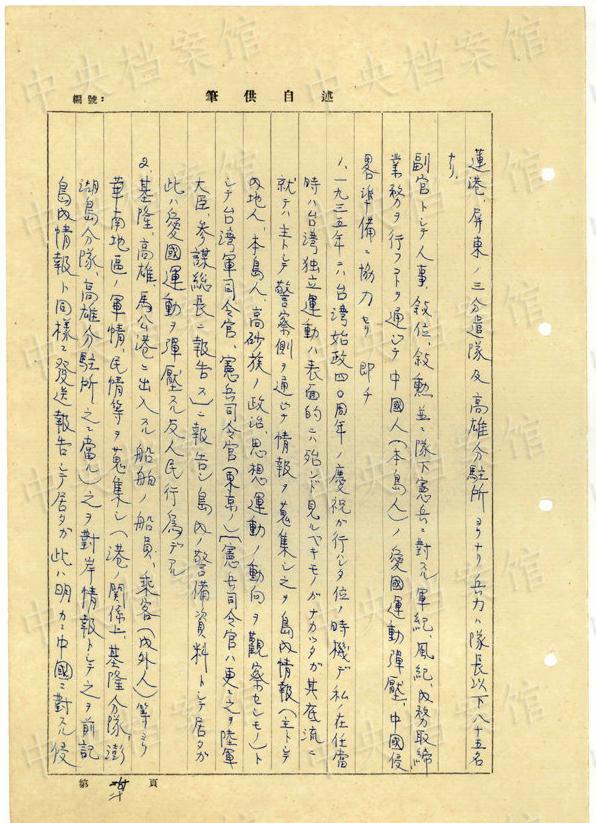 述自供筆
編號：
蓮港、屏東ノ三分遣隊及高雄分駐所ヨリナリ兵力ハ隊長以下八十五名
ナリ、
副官トシテ人事、敍位、敍勲並ニ隊下憲兵ニ對スル軍紀、風紀、内務取締
業務ヲ行フコトヲ通シテ中國人（本島人）ノ愛國運動彈壓、中國侵
畧準備ニ協力セリ 即チ
1、一九三五年ニハ台湾始政四〇周年ノ慶祝ガ行ハレタ位ノ時機デ私ノ在任當
時ハ台湾独立運動ハ表面的ニハ殆ンド見ルベキモノガナカッタガ其底流ニ
就テハ主トシテ警察側ヲ通シテ情報ヲ蒐集シ之ヲ島内情報（主トシテ
内地人、本島人、高砂族ノ政治、思想運動ノ動向ヲ觀察セシモノ）ト
シテ台湾軍司令官、憲兵司令官（東京ノ）（憲兵司令官ハ更ニ之ヲ陸軍
大臣、参謀総長ニ報告ス）ニ報告シ島内ノ警備資料トシテ居タガ
此ハ愛國運動ヲ彈壓スル反人民行爲デアル
2、基隆、高雄、馬公港ニ出入スル船舶ノ船員、乗客（内外人）等ヨリ
華南地區ノ軍情民情等ヲ蒐集シ（港ノ関係上基隆分隊、澎
湖島分隊、高雄分駐所之ニ當ル）之ヲ對岸情報トシテ之ヲ前記
島内情報ト同様ニ發送報告シテ居タガ此ハ明カニ中國ニ對スル侵
第 頁
中央档案馆